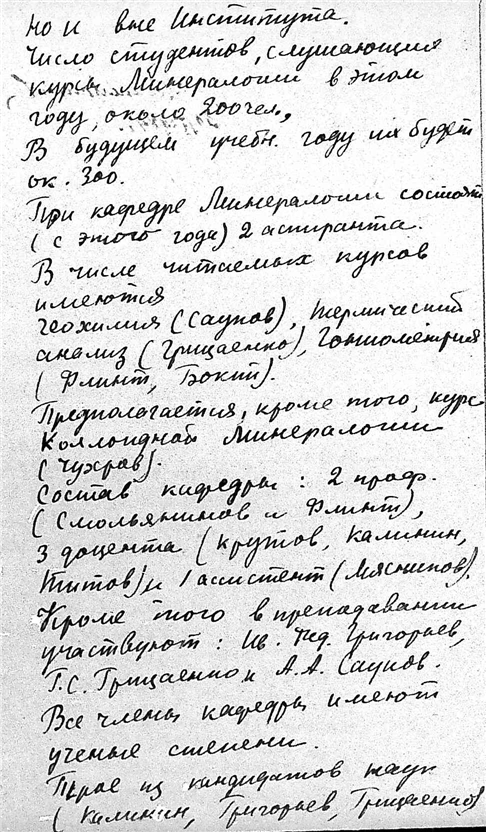 но и вне Института.
Число студентов, слушающих
курсы Минералогии в этом
году, около 200 чел.,
В будущем учебн. году их будет
ок. 300.
При кафедре Минералогии состоят
(с этого года) 2 аспиранта.
В числе читаемых курсов
имеются
Геохимия (Сауков), термический
анализ (Грицаенко), Гониометрия
(Флинт, Бокит).
Предполагается, кроме того, курс
Коллоидной Минералогии
(Чухров).
Состав кафедры: 2 проф.
(Смольянинов и Флинт),
3 доцента (Крутов, Калинин,
Титов) и 1 ассистент (Мясников).
Кроме того в преподавании
участвуют: Ив. Фед. Григорьев,
Г.С. Грицаенко и А.А. Сауков.
Все члены кафедры имеют
ученые степени.
Трое из кандидатов наук
(Калинин, Григорьев, Грицаенко)